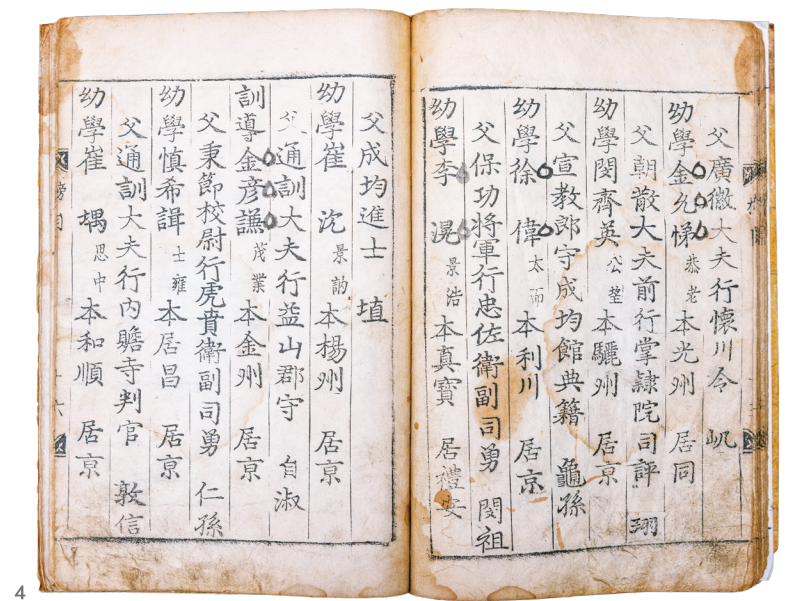 父廣徽大夫行懷川令 㞦
幼學金允悌 恭老 本光州 居同
父朝散大夫前行掌隸院司評 珝
幼學閔齊英 公 本驪州 居京
父宣教郎守成均館典籍 龜孫
幼學徐 偉 太而 本利川 居京
父保功將軍行忠佐衛副司勇 閔祖
幼學李 滉 景浩 本真寶 居禮安
父成均進士 埴
幼學崔 沈 景訥 本楊州 居京
父通訓大夫行益山郡守 自淑
訓導金彥謙 茂業 本金州 居京
父秉節校尉行虎賁衛副司勇 仁孫
幼學慎希諿 士雍 本居昌 居京
父通訓大夫行內贍寺判官 敦信
幼學崔 堣 思中 本和順 居京
4